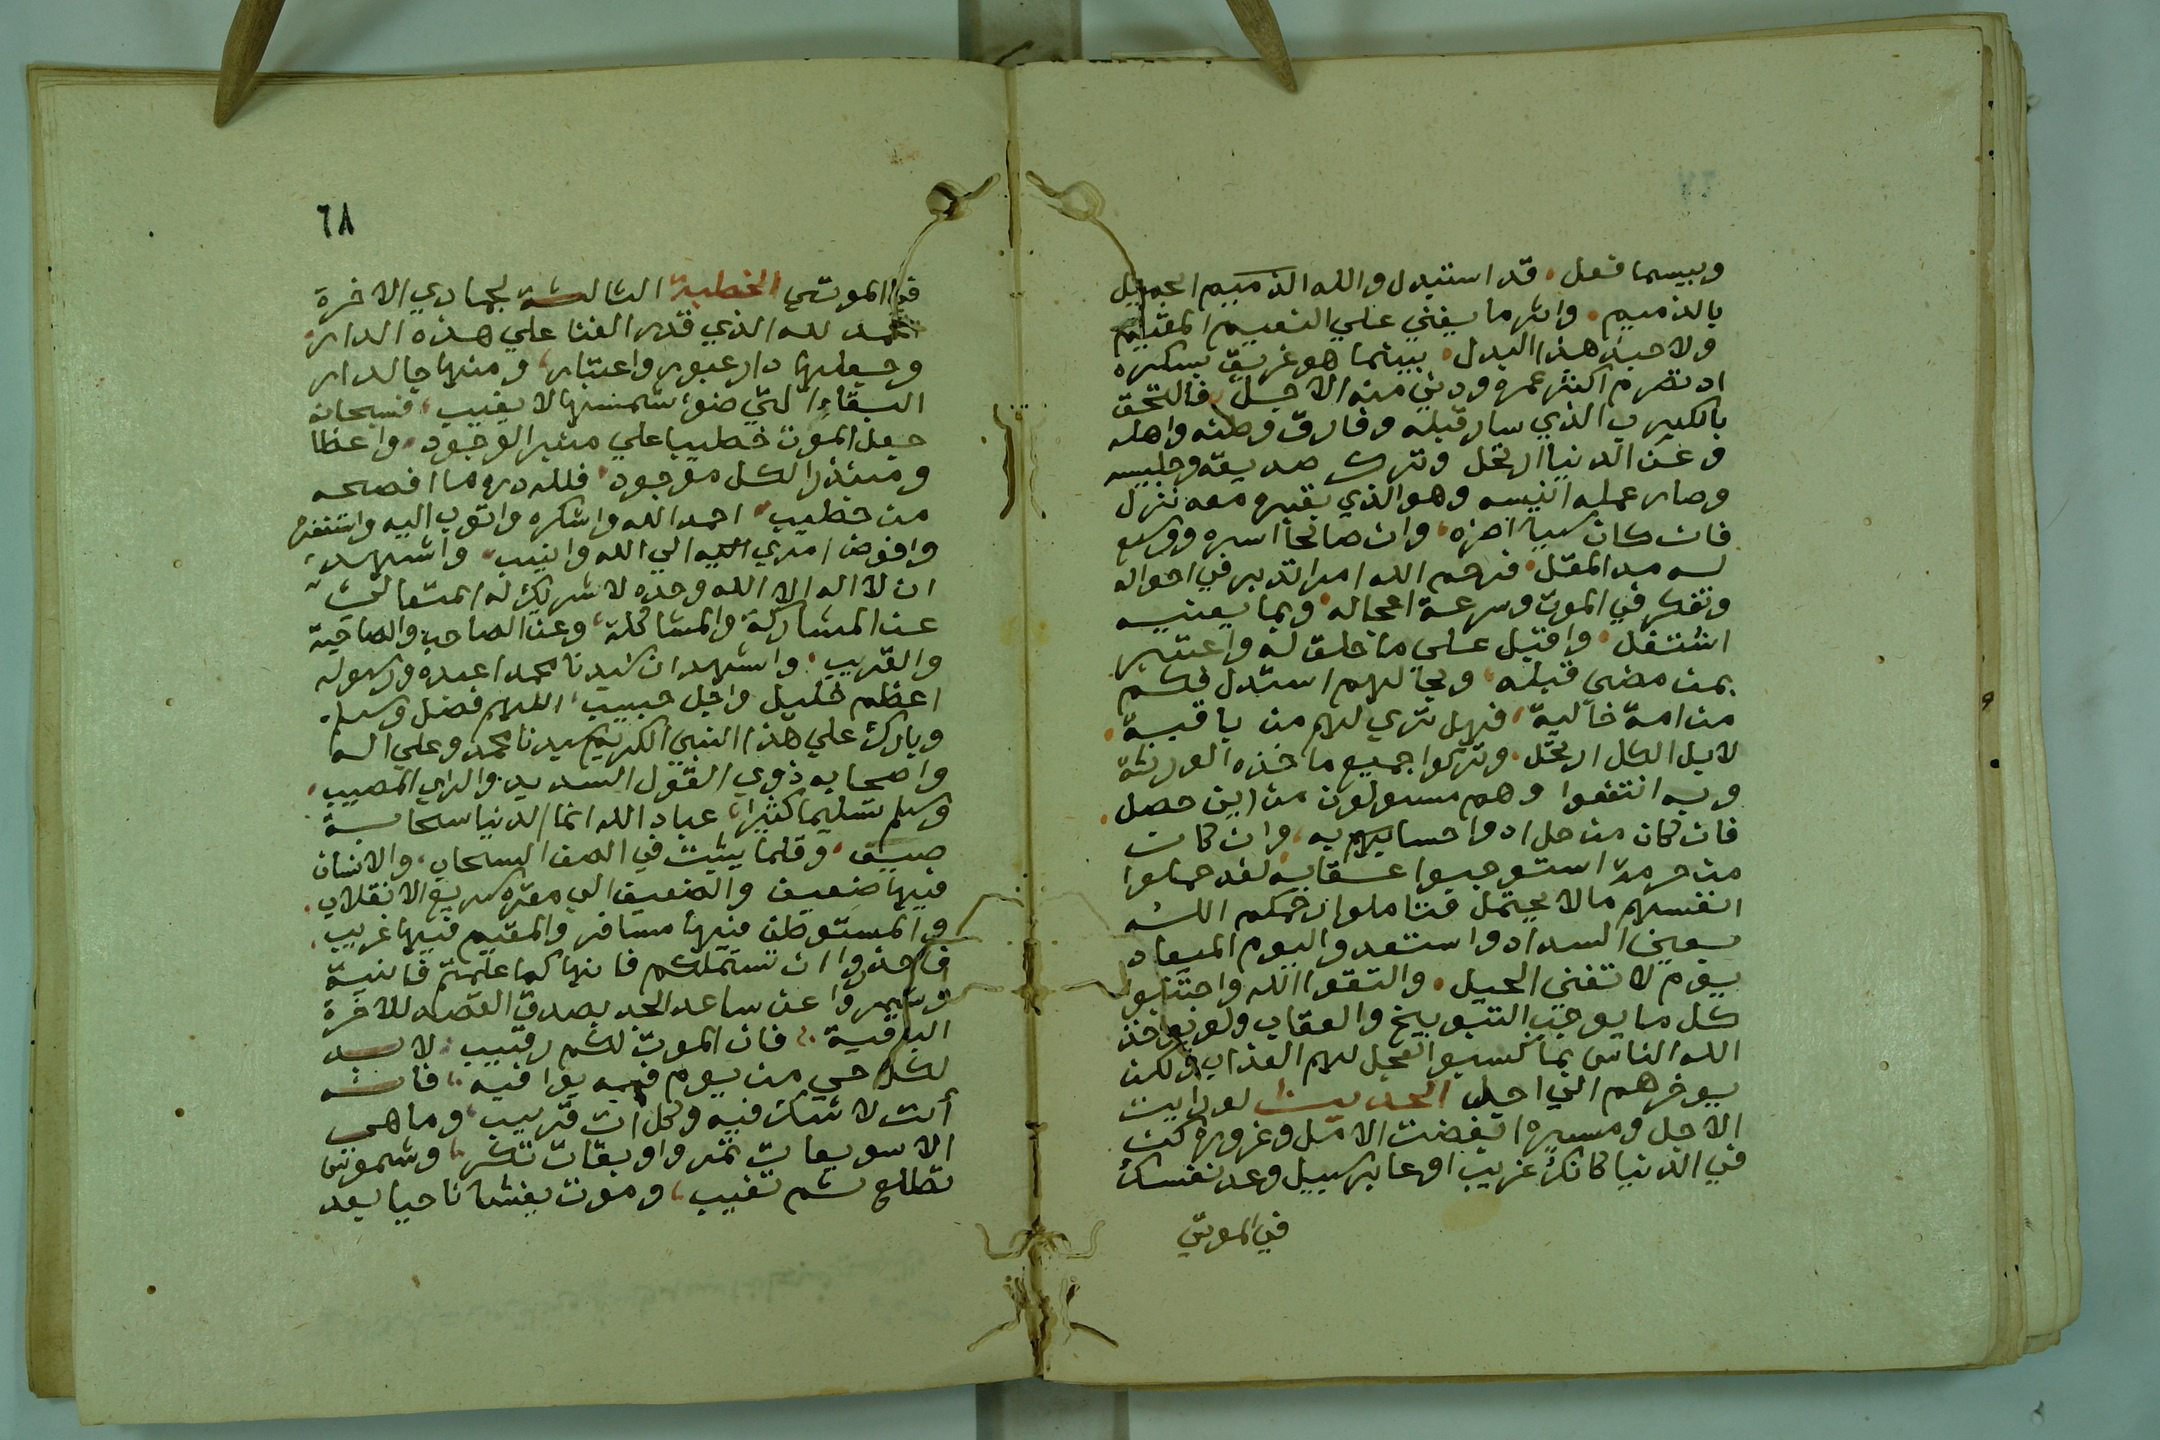 وبيسما فعل قد استبدل والله الذميم الجميل
بالذميم واثر ما يفني علي النعيم المقيم
ولا حبذ هذا البدل بينما هو غريق بسكره
اد تصرم اكثر عمره ودني منه الاجل فالتحق
بالكيرب الذي سار قبله وفارق وطنه واهله
وعن الدنيا ارتحل وترك صديقه وجليسه
وصار عمله انيسه وهو الذي بقبره معه نزل
فان كان سيا احزنه وان صالحا اسره ووسع
له مد المقل فرحم الله امرا تدبر في احواله
وتفكر في الموت وسرعة اعجاله وبما يعنيه
اشتغل واقبل علي ما خلق له واعتبر
بمن مضي قبله وبحالهم استدل فكم
من امة خالية فهل تري لهم من باقية
لا بل الكل ارتحل وتركوا جميع ما خذه الورثة
وبه انتفعوا وهم مسولون من اين حصل
فان كان من حل ادوا حسابهم به وان كان
من حرمة استوجبوا عقابه لقد حملوا
انفسهم مالا يحتمل فتاملوا رحمكم الله
بعين السداد واستعدوا ليوم الميعاد
يوم لا تغني الحيل والتقوا الله واجتنبوا
كل ما يوجب التوبيخ والعقاب ولو يواخذ
الله الناس بما كسبوا لعجل لهم العذاب ولكن
يوخرهم الي اجل الحديث لو رايت
الاجل ومسيره ابغضت الامل وغروره كن
في الدنيا كانك غريب او عابر سبيل وعد نفسك
في الموتي
٦٨
في الموتي الخطبة الثالثة لجمادي الاخرة
الحمد لله الذي قدر الفنا علي هذه الدار
وجعلها دار عبور واعتبار ومنها جا لدار
البقاء التي ضوء شمسها لا يغيب فسبحانه
جعل الموت خطيبا علي منبر الوجود واعظا
ومنذرا لكل موجود فلله دره ما افصحه
من خطيب احمد الله واشكره واتوب اليه واستغفره
وافوض امري اليه الي الله وانيب واشهد
ان لا اله الا الله وحده لا شريك له المتعالي
عن المشاركة والمشاكلة وعن الصاحب والصاحبة
والقريب واشهد ان سيدنا محمدا عبده ورسوله
اعظم خليل واجل حبيب اللهم فصل وسلم
وبارك علي هذا النبي الكريم سيدنا محمد وعلي اله
واصحابه ذوي القول السديد والراي المصيب
وسلم تسليما كثيرا عباد الله انما الدنيا سحابة
صيف وقلما يثبت في الصف السحاب والانسان
فيها ضعيف والضعيف الي مقره سريع الانقلاب
والمستوطن فيها مسافر والمقيم فيها غريب
فاحذروا ان تستملكم فانها كما علمتم فانية
وشمروا عن ساعد الجد بصدق القصد للاخرة
الباقية فان الموت لكم رقيب لا بد
لكل حي من يوم فيه يوافيه فانه
أت لا شك فيه وكل ات قريب وما هي
الا سويعات تمر واويقات تكر وشموس
تطلع ثم تغيب وموت يغشانا حيا بعد